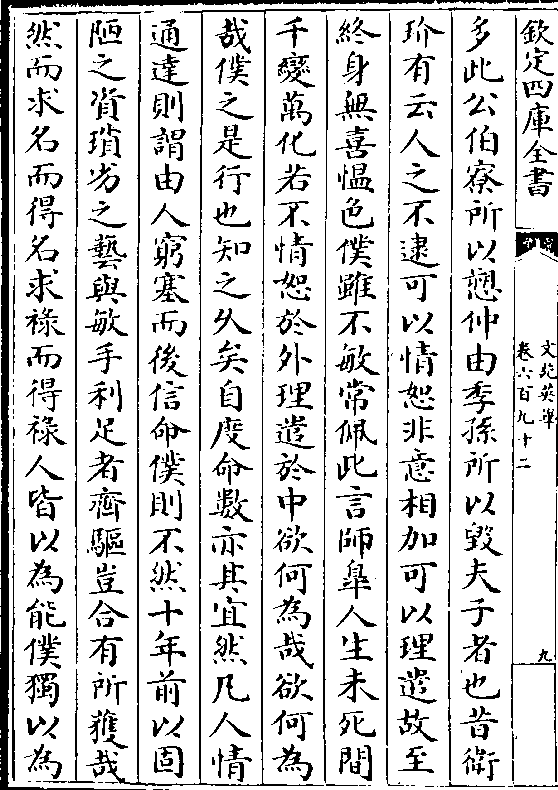 欽定四庫全書
文苑英華
卷六百九十二
九
多此公伯寮所以愬仲由季孫所以毀夫子者也昔衛
玠有云人之不逮可以情恕非意相加可以理遣故至
終身無喜愠色僕雖不敏常佩此言師臯人生未死間
千變萬化若不情恕於外理遣於中欲何為哉欲何為
哉僕之是行也知之久矣自度命數亦其宜然凡人情
通達則謂由人窮塞而後信命僕則不然十年前以固
陋之資瑣劣之藝與敏手利足者齊驅豈合有所獲哉
然而求名而得名求祿而得祿人皆以為能僕獨以為